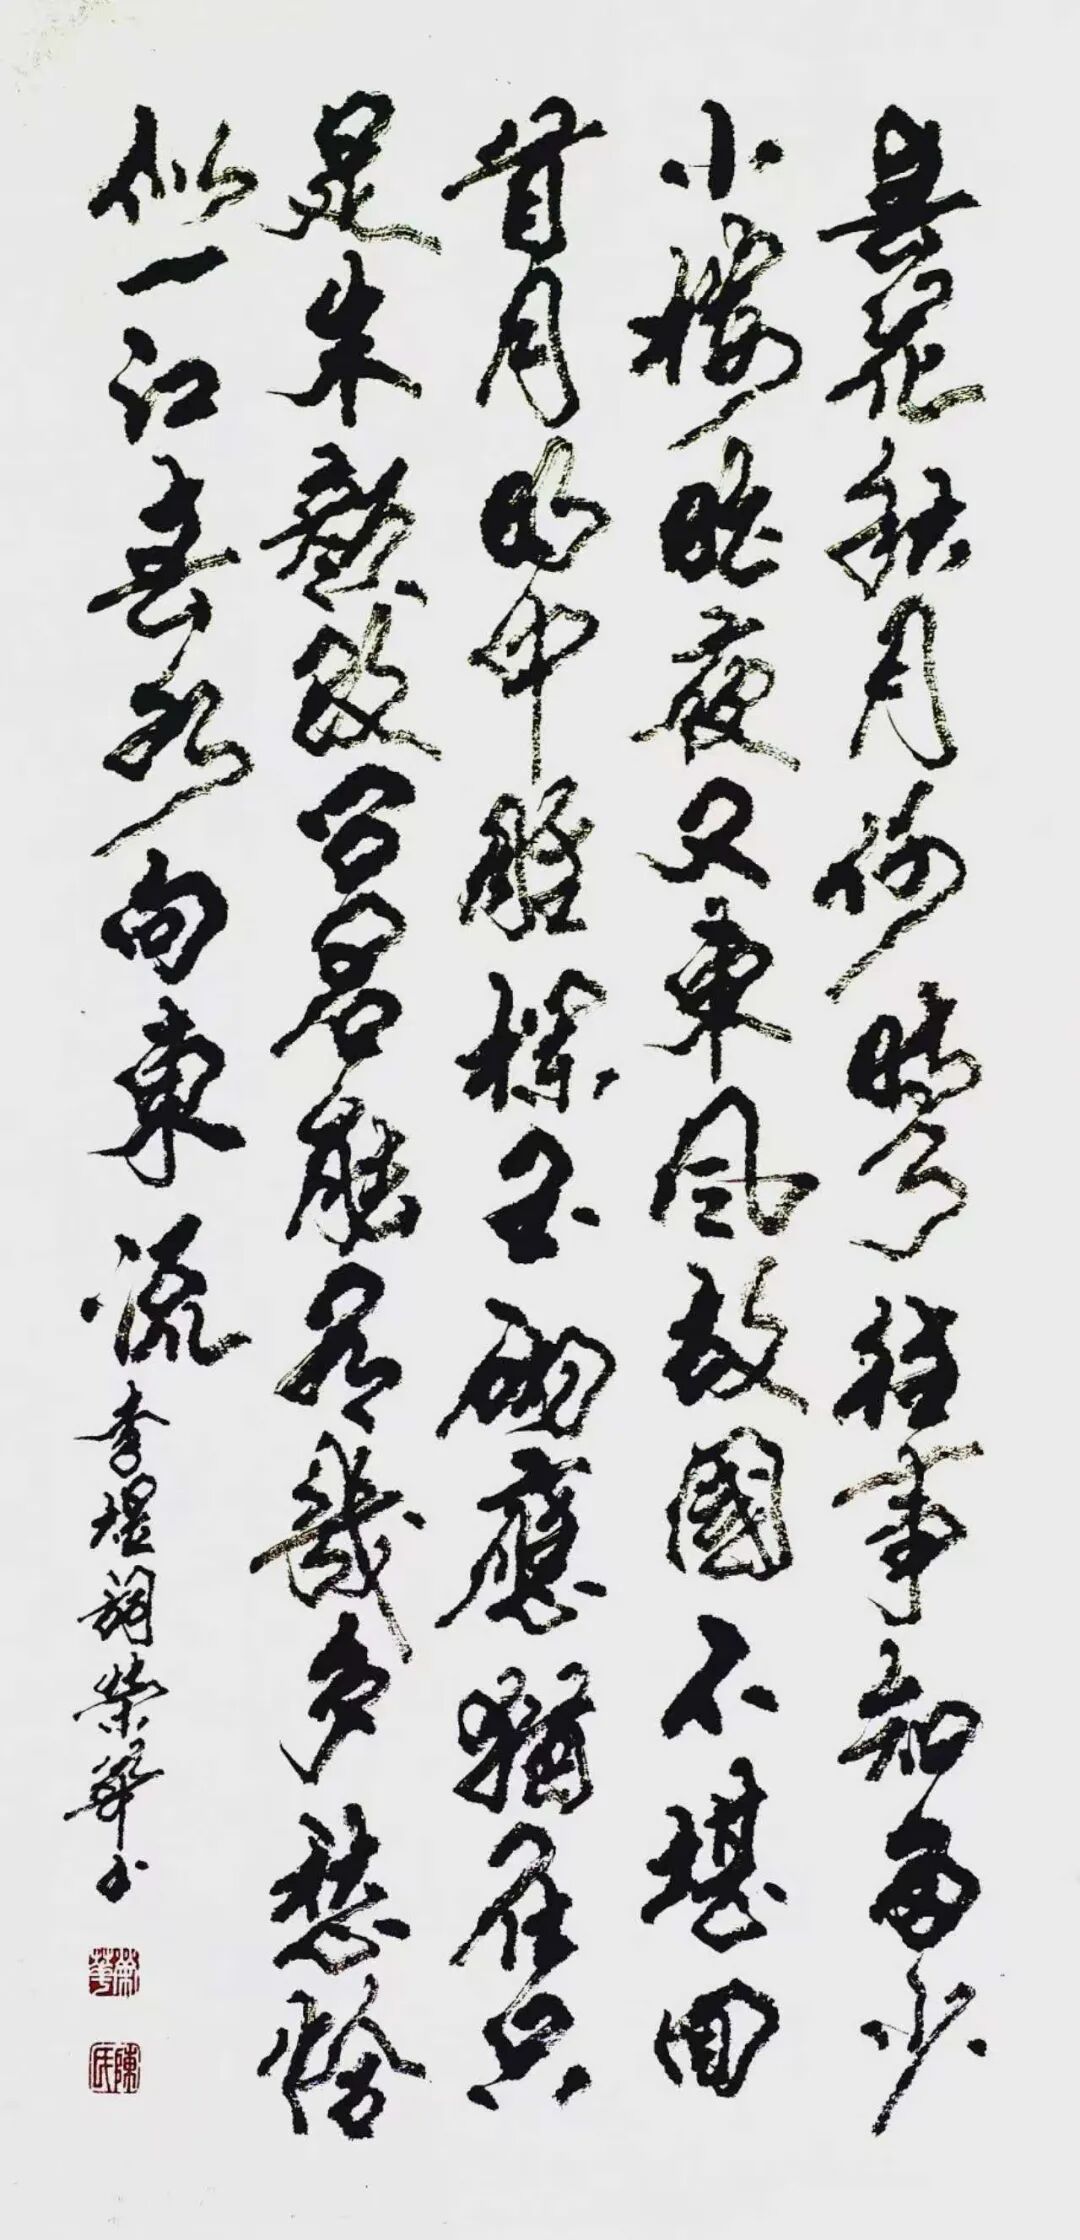 春花秋月何時了往事知多少
小樓昨夜又東風故國不堪回
首月明中雕欄玉砌應猶在只
是朱顏改問君能有幾多愁恰
似一江春水向東流
李煜詞榮華书
榮華
陳氏